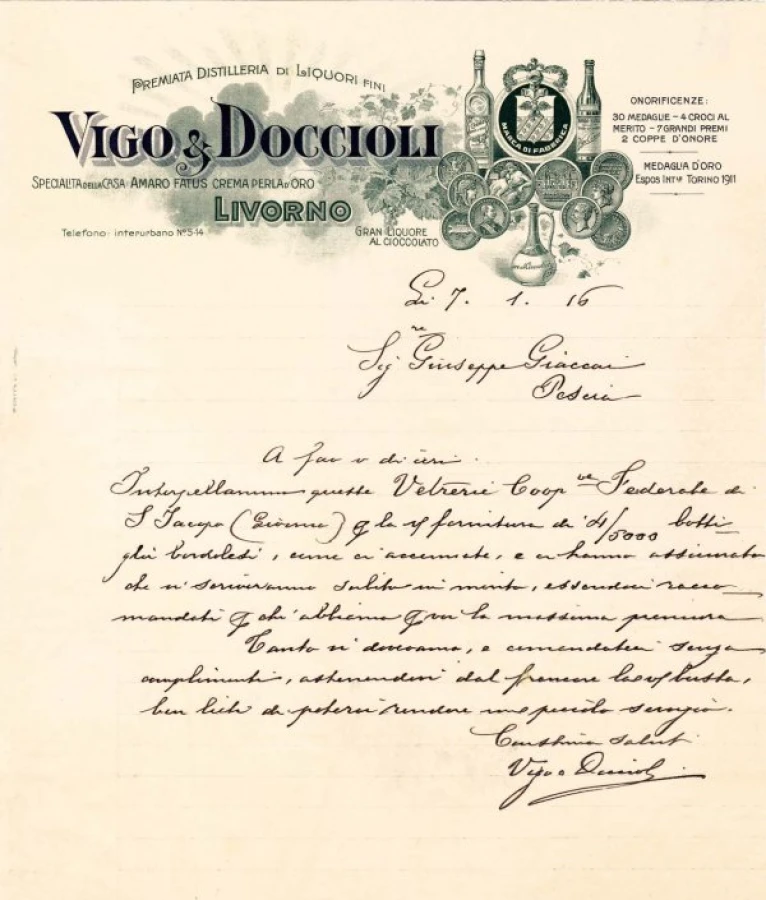 PREMIATA DISTILLERIA DI LIQUORI FINI
VIGO & DOCCIOLI
SPECIALITÀ DELLA CASA: AMARO FATUS CREMA PERLA D'ORO
LIVORNO
Telefono: interurbano N° 5-14
GRAN LIQUORE
AL CIOCCOLATO
MARCA DI FABBRICA
ONORIFICENZE:
30 MEDAGLIE - 4 CROCI AL
MERITO - 7 GRANDI PREMI
2 COPPE D'ONORE
MEDAGLIA D'ORO
ESPOS INTle TORINO 1911
Li 7. 1. 16
Sig re Giuseppe Giaccai
Pescia
A favo v di ieri.
Interpellammo queste Vetrerie Coop ve Federate di
S Jacopo (Livorno) la fornitura di 4/5000 botti
glie bordolesi, come ci accennate, e ci hanno assicurato
che vi scriveranno subito in merito, essendovi racco
mandati abbiamo voi la massima premura
Tanto vi dovevamo, e comandateci senza
complimenti, astenendovi dal francare la busta,
ben lieti di potervi rendere un piccolo servigio.
Con stima saluti
Vigo e Doccioli